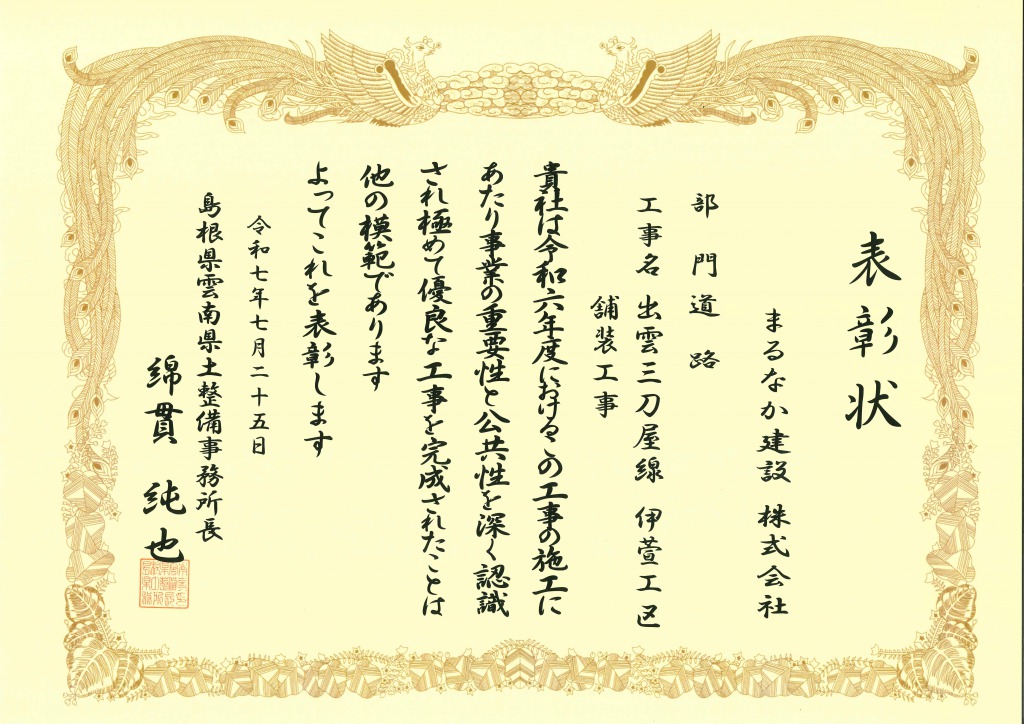 表彰状
まるなか建設 株式会社
部門 道路
工事名 出雲三刀屋線 伊萱工区
舗装工事
貴社は令和六年度におけるこの工事の施工に
あたり事業の重要性と公共性を深く認識
され極めて優良な工事を完成されたことは
他の模範であります
よってこれを表彰します
令和七年七月二十五日
島根県雲南県土整備事務所長
綿貫 純也